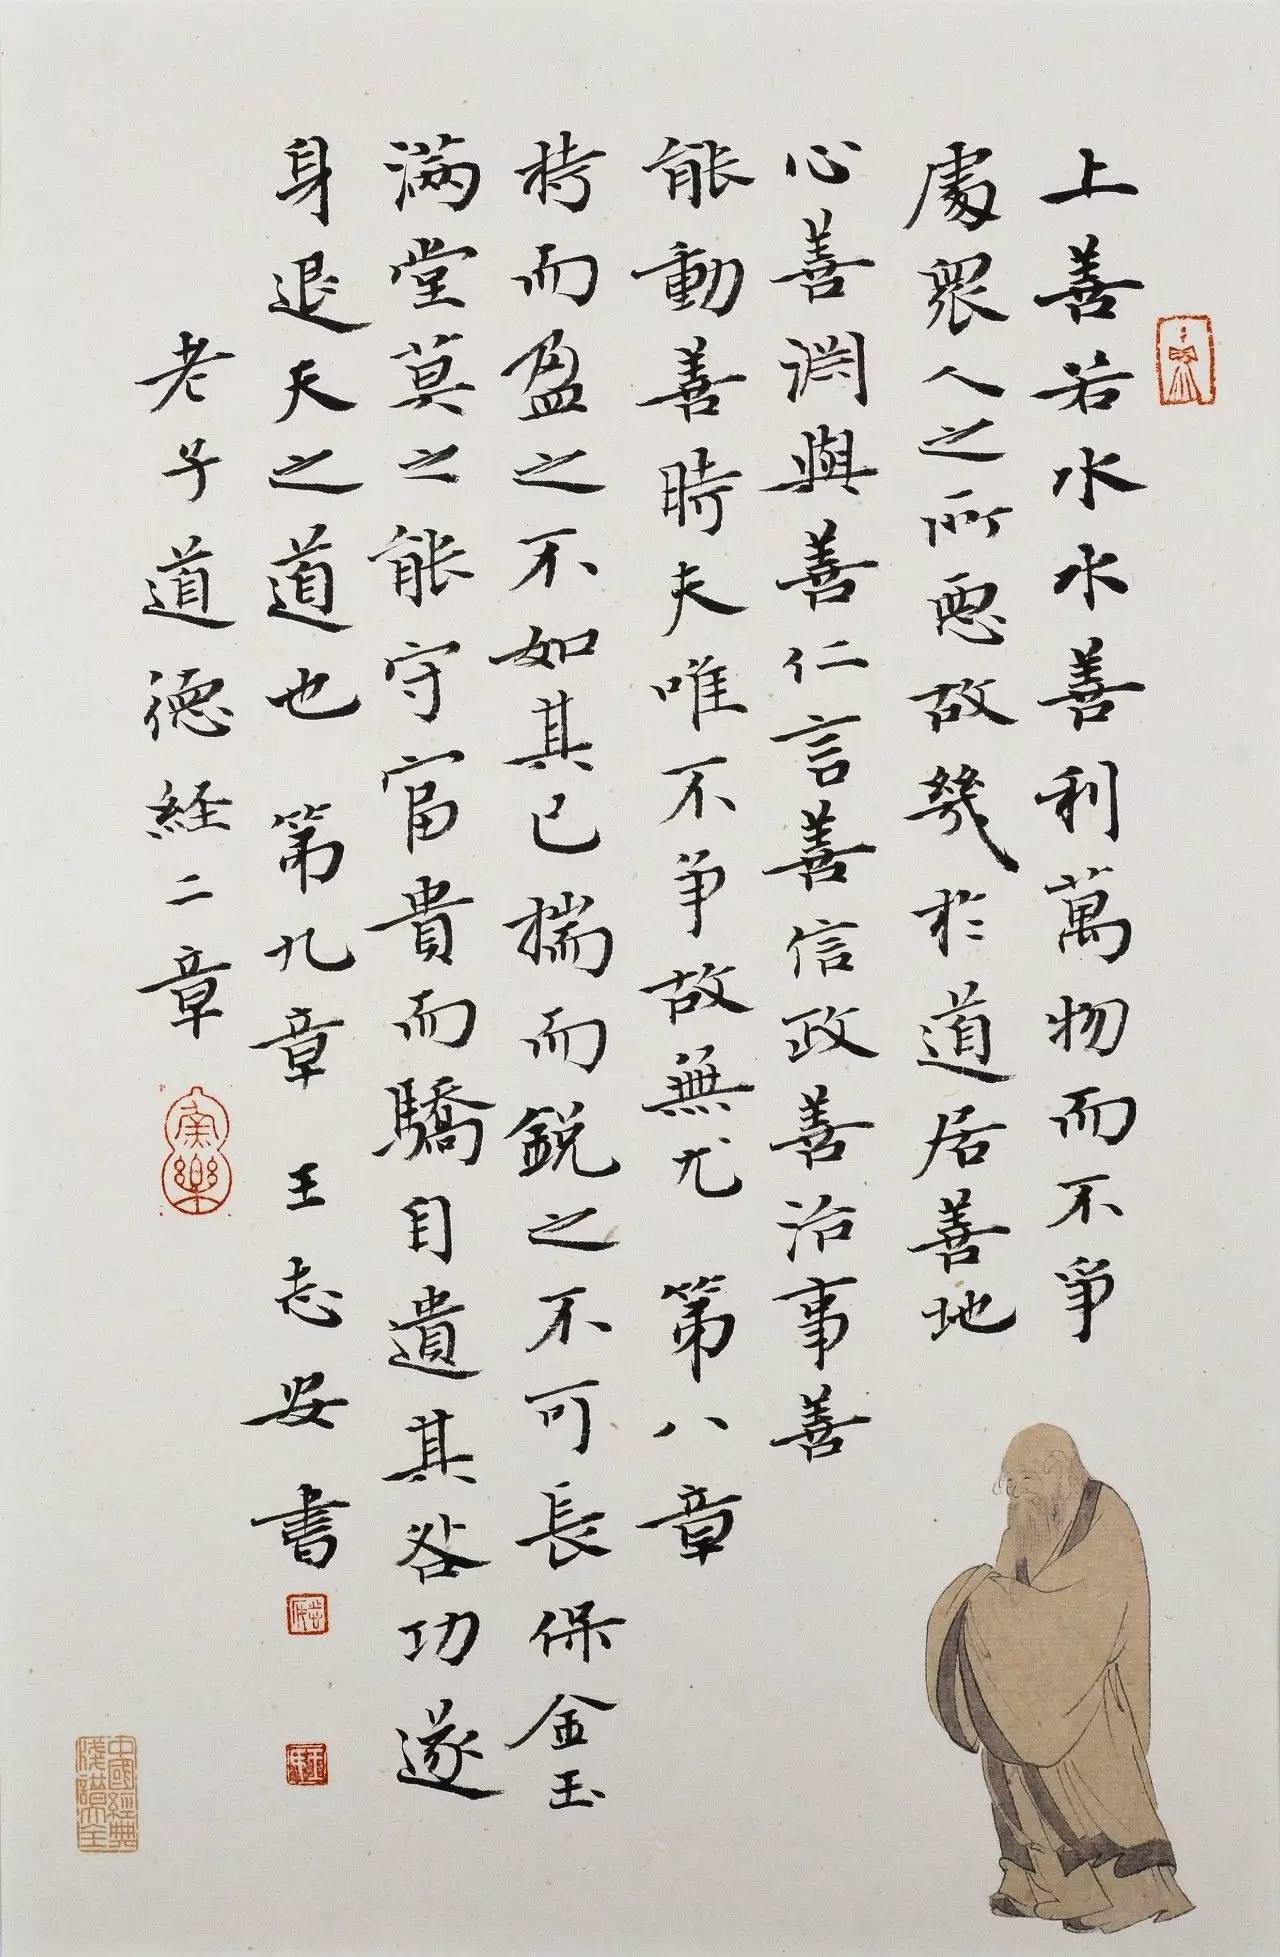 上善若水水善利萬物而不爭
處眾人之所惡故幾於道居善地
心善淵與善仁言善信政善治事善
能動善時夫唯不爭故無尤 第八章
持而盈之不如其已揣而銳之不可長保金玉
滿堂莫之能守富貴而驕自遺其咎功遂
身退天之道也 第九章 王志安書
老子道德経二章
中國經典
箋譜大全